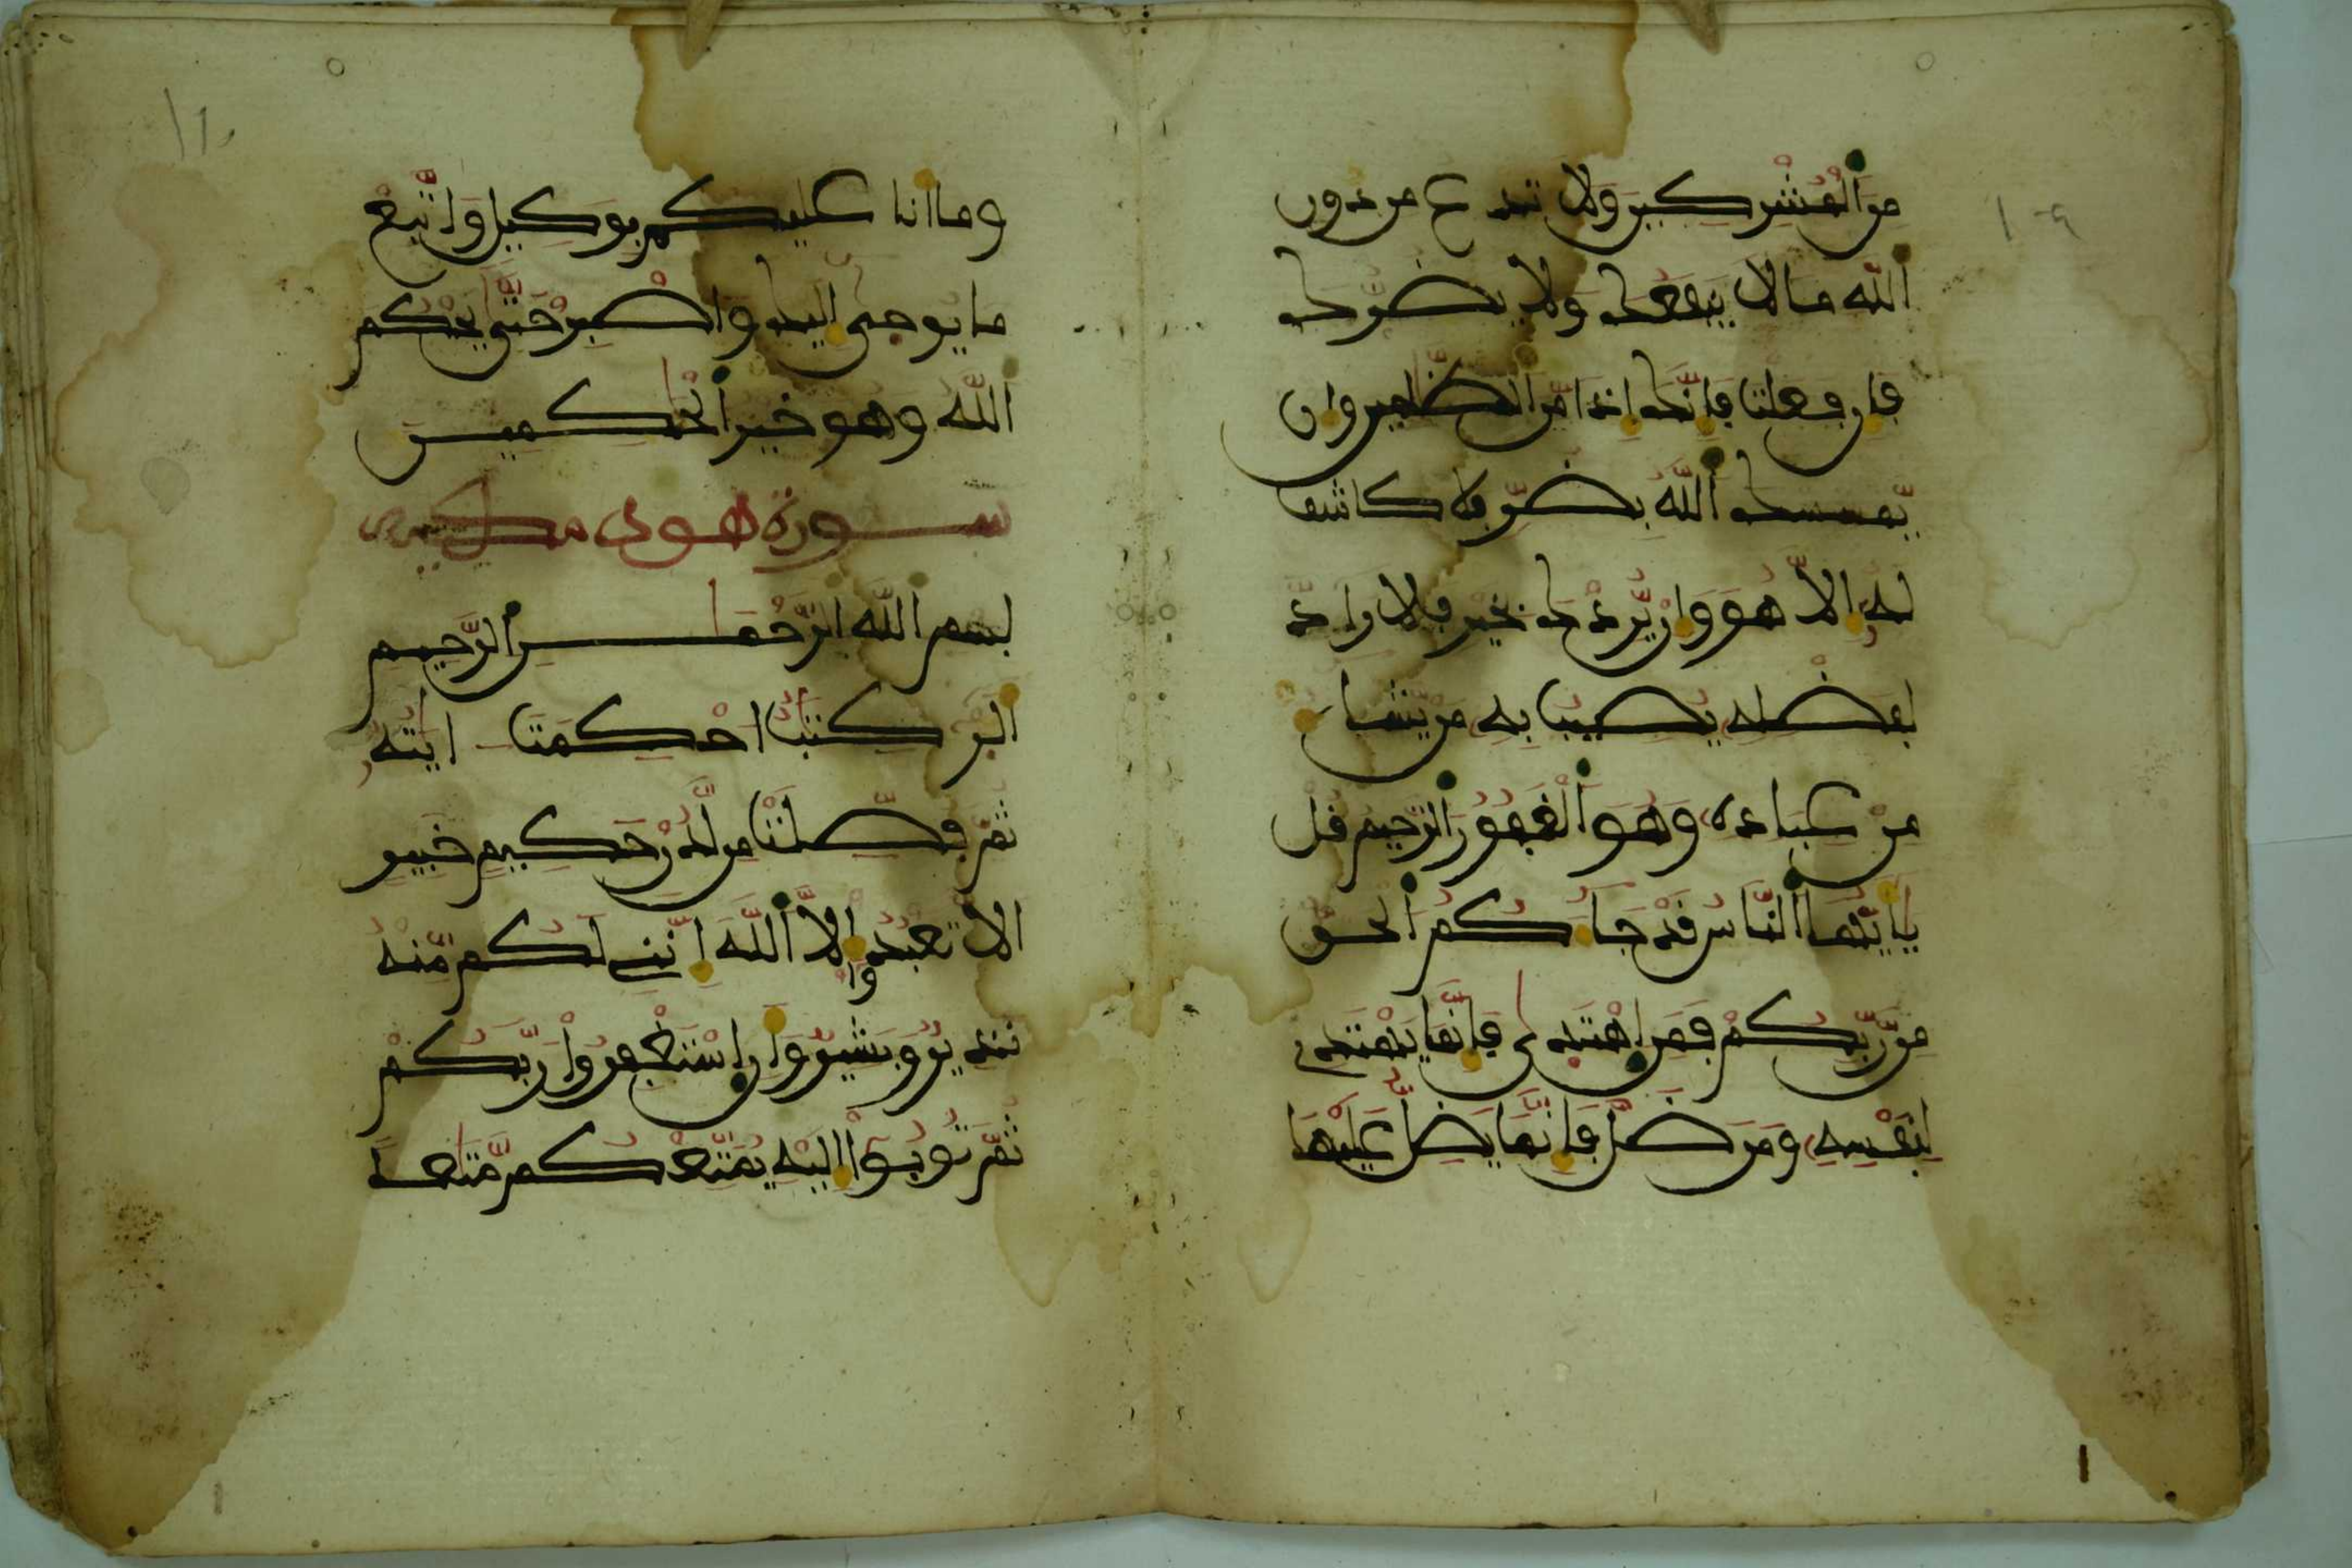 ١٠٩
من المشركين ولا تدع من دون
الله ما لا ينفعك ولا يضرك
فإن فعلت فإنك إذا من الظلمين وإن
يمسسك الله بضر فلا كاشف
له إلا هو وإن يردك بخير فلا راد
لفضله يصيب به من يشاء
من عباده وهو الغفور الرحيم قل
يا أيها الناس قد جاءكم الحق
من ربكم فمن اهتدى فإنما يهتدي
لنفسه ومن ضل فإنما يضل عليها
١١٠
وما أنا عليكم بوكيل واتبع
ما يوحى إليك واصبر حتى يحكم
الله وهو خير الحكمين
سورة هود
بسم الله الرحمن الرحيم
الر كتب أحكمت ايته
ثم فصلت من لدن حكيم خبير
ألا تعبدوا إلا الله إنني لكم منه
نذير وبشير وأن استغفروا ربكم
ثم توبوا إليه يمتعكم متعا